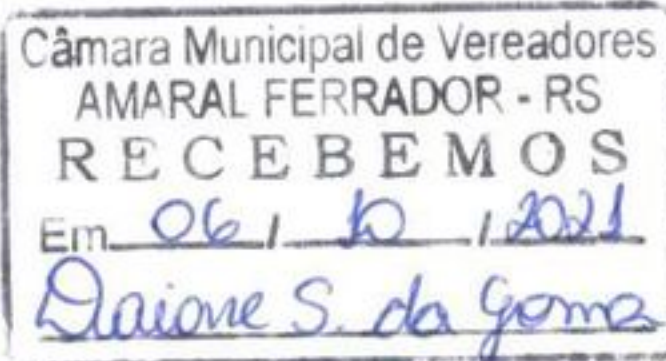 Câmara Municipal de Vereadores
AMARAL FERRADOR - RS
RECEBEMOS
Em 06 / 10 / 2021
Daiane S. da Gama